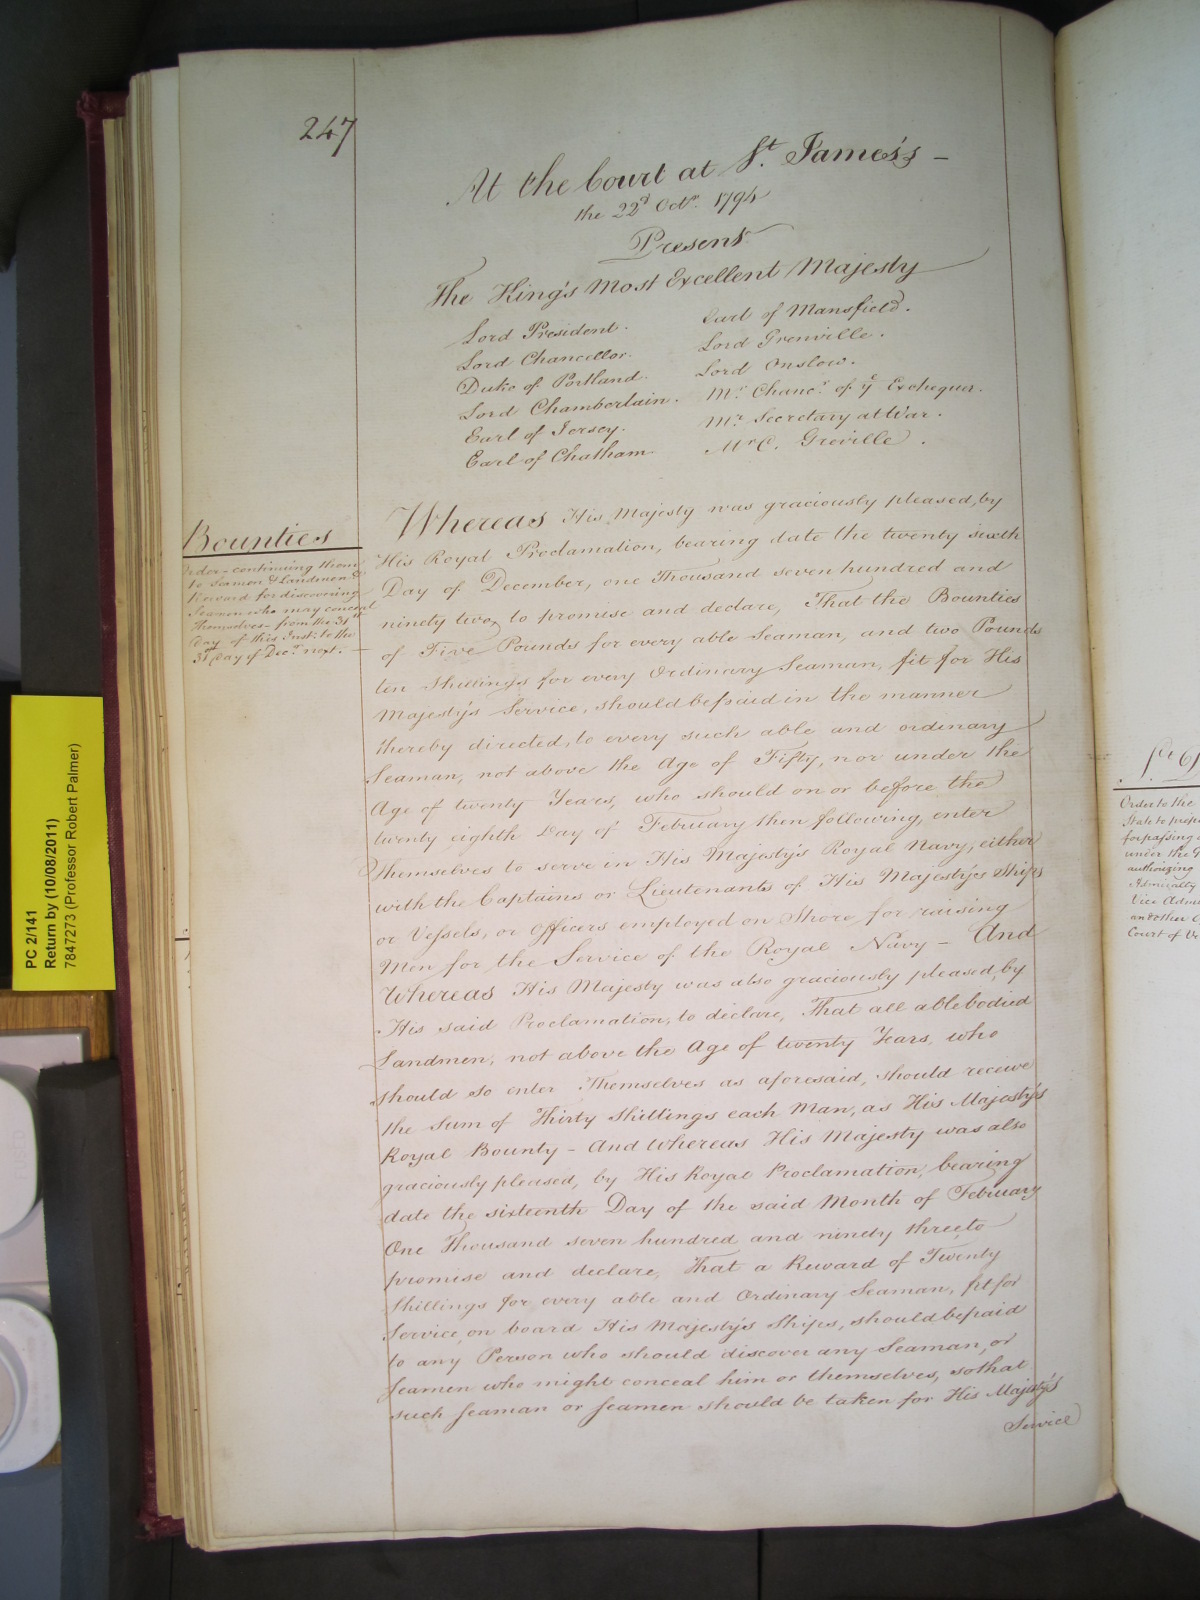 247
At the Court at St. James's –
the 22d Octr. 1794
Present
The King's Most Excellent Majesty
Lord President.
Lord Chancellor.
Duke of Portland.
Lord Chamberlain.
Earl of Jersey.
Earl of Chatham
Earl of Mansfield.
Lord Grenville.
Lord Onslow.
Mr. Chancr. of ye Exchequer.
Mr. Secretary at War.
Mr C. Greville.
Bounties
Order continuing them
to Seamen & Landmen &
Reward for discovering
Seamen who may conceal
themselves from the 31st
Day of this Inst: to the
31st Day of Decr. next. –
Whereas His Majesty was graciously pleased, by
His Royal Proclamation, bearing date the twenty sixth
Day of December, one Thousand seven hundred and
ninety two, to promise and declare, That the Bounties
of Five Pounds for every able Seaman, and two Pounds
ten Shillings for every Ordinary Seaman, fit for His
Majesty's Service, should be paid in the manner
thereby directed, to every such able and ordinary
Seaman, not above the Age of Fifty, nor under the
Age of twenty Years, who should on or before the
twenty eighth Day of February then following, enter
Themselves to serve in His Majesty's Royal Navy, either
with the Captains or Lieutenants of His Majesty's Ships
or Vessels, or Officers employed on Shore for raising
Men for the Service of the Royal Navy – And
Whereas His Majesty was also graciously pleased, by
His said Proclamation, to declare, That all ablebodied
Landmen, not above the Age of twenty Years, who
should so enter Themselves as aforesaid, should receive
the Sum of Thirty Shillings each Man, as His Majesty's
Royal Bounty – And Whereas His Majesty was also
graciously pleased, by His Royal Proclamation, bearing
date the sixteenth Day of the said Month of February
One Thousand seven hundred and ninety three, to
promise and declare, That a Reward of Twenty
Shillings for every able and Ordinary Seaman, fit for
Service, on board His Majesty's Ships, should be paid
to any Person who should discover any Seaman, or
Seamen who might conceal him or themselves, so that
such Seaman or Seamen should be taken for His Majesty's
Service
PC 2/141
Return by (10/08/2011)
7847273 (Professor Robert Palmer)
Order to the
State to prep
for passing
under the
authorizing
Admiralty
Vice Adm
and other
Court of